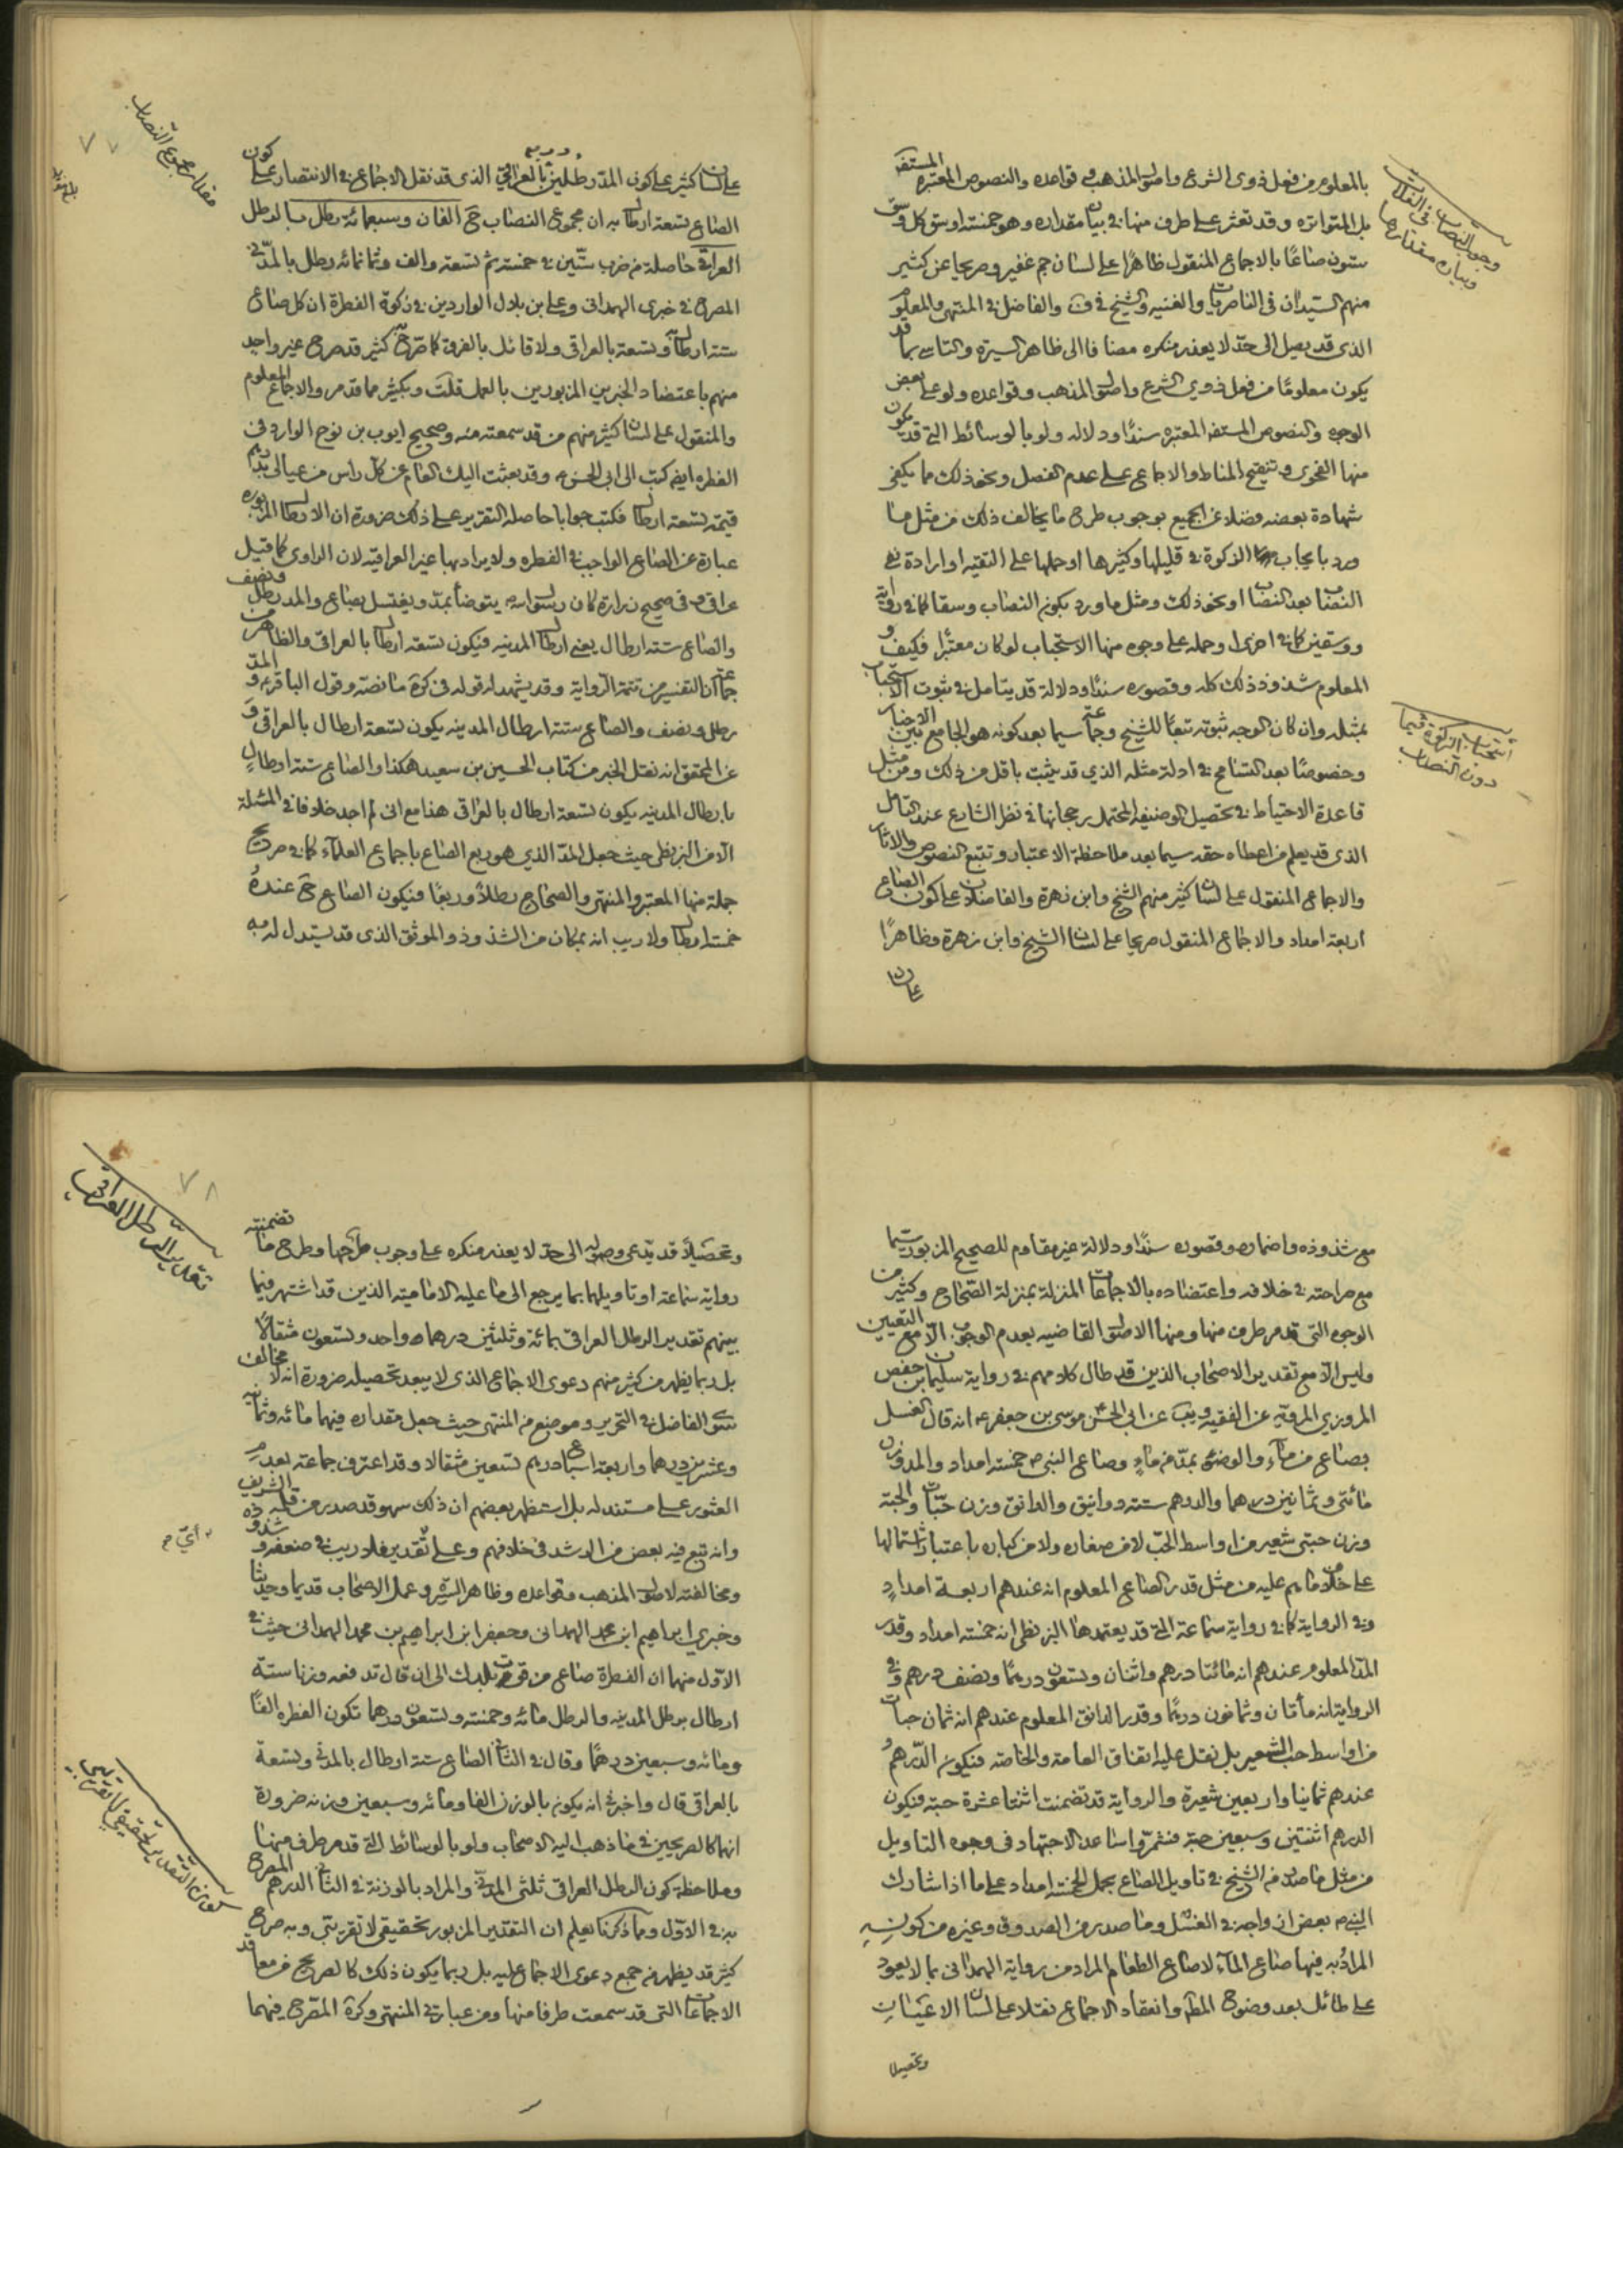 بالمعلوم من فعل ذوي الشرع واصول المذهب وقواعده والنصوص المعتبره المستفيضه
بل المتواتره وقد تعثر على طرف منها في بيان مقداره وهو خمسة اوسق كل وسق
ستون صاعًا بالاجماع المنقول ظاهرًا على لسان جم غفير وصريحا عن كثير
منهم السيدان في الناصريات والغنيه والشيخ في ف والفاضل في المنتهى والمعلوم
الذي قد يصل الى حدّ لا يعذر منكره مضافا الى ظاهر السيرة والتاسي بما قد
يكون معلومًا من فعل ذوي الشرع واصول المذهب وقواعده ولو على بعض
الوجوه والنصوص المستفيضه المعتبره سندًا ودلاله ولو بالوسائط التي قد يكون
منها الفحوى وتنقيح المناط والاجماع على عدم الفصل ونحو ذلك مما يكفي
شهادة بعضه فضلا عن الجميع بوجوب طرح ما يخالف ذلك من مثل ما
ورد بايجاب الزكوة في قليلها وكثيرها او حملها على التقيه او ارادة
النصاب بعد النصاب او نحو ذلك ومثل ما ورد بكون النصاب وسقا كما في رواية
ووسقين كما في اخرى او حمله على وجوه منها الاستحباب لو كان معتبرًا فكيف و
المعلوم شذوذ ذلك كله وقصوره سندًا ودلالة قد يتامل في ثبوت الاستحباب
بمثله وان كان الوجه ثبوته تبعًا للشيخ وجماعة سيما بعد كونه هو الجامع بين الاخبار
وخصوصًا بعد التسامح في ادلة مثله الذي قد يثبت باقل من ذلك ومن مثل
قاعدة الاحتياط في تحصيل الوظيفه المحتمل رجحانها في نظر الشارع عند التامل
الذي قد يعلم من اعطاه حقه سيما بعد ملاحظة الاعتبار وتتبع النصوص والاثار
والاجماع المنقول على لسان كثير منهم الشيخ وابن زهرة والفاضلان على كون الصاع
اربعة امداد والاجماع المنقول صريحا على لسان الشيخ وابن زهرة وظاهرًا
على لسان
وجوب النصاب في الغلات
وبيان مقدارها
استحباب الزكوة فيما
دون النصاب
على لسان كثير على كون المدّ رطلين وربع بالعراقي الذي قد نقل الاجماع في الانتصار على كون
الصاع تسعة ارطال به ان مجموع النصاب ح الفان وسبعمائة رطل بالرطل
العراقي حاصلة من ضرب ستّين في خمسة ثم تسعة والف وثمانمائة رطل بالمدني
المصرح في خبري الهمداني وعلي بن بلال الواردين في زكوة الفطرة ان كل صاع
ستة ارطال به وتسعة بالعراقي ولا قائل بالفرق كما صرّح به كثير قد صرح غير واحد
منهم باعتضاد الخبرين المزبورين بالعمل قلت وبكثير مما قد مر والاجماع المعلوم
والمنقول على لسان كثير منهم من قد سمعته منه وصحيح ايوب بن نوح الوارد في
الفطره ايضا كتب الى ابي الحسن ع وقد بعثت اليك العام عن كل راس من عيالي بدرهم
قيمة تسعة ارطال فكتب جوابا حاصله التقرير على ذلك ضرورة ان الارطال المزبوره
عبارة عن الصاع الواجب في الفطره ولا يراد بها غير العراقيه لان الراوي كما قيل
عراقي وفي صحيح زرارة كان رسول الله ص يتوضأ بمدّ ويغتسل بصاع والمد رطل ونصف
والصاع ستة ارطال يعني ارطال المدينه فيكون تسعه ارطال بالعراقي والظاهر من
جماعة ان التفسير من تتمة الرواية وقد يشهد له قوله في كرة ما نصّه وقول الباقر ع والمدّ
رطل ونصف والصاع ستة ارطال المدينه يكون تسعة ارطال بالعراقي و
عن المحقق انه نقل الخبر من كتاب الحسين بن سعيد هكذا والصاع ستة ارطالٍ
بارطال المدينه يكون تسعة ارطال بالعراقي هذا مع اني لم اجد خلافا في المسئلة
الا من البزنطي حيث جعل المدّ الذي هو ربع الصاع باجماع العلمآء كما في صريح
جملة منها المعتبر والمنتهى والصحاح رطلاً وربعًا فيكون الصاع ح عنده
خمسة ارطال ولا ريب انه بمكان من الشذوذ والموثق الذي قد يستدل له به
مقدار مجموع النصاب
٧٧
مع شذوذه واضماره وقصوره سندًا ودلالة غير مقاوم للصحيح المزبور سيما
مع صراحته في خلافه واعتضاده بالاجماعات المنزلة بمنزلة الصّحاح وكثير من
الوجوه التي قد مر طرف منها ومنها الاصول القاضيه بعدم الوجوب الّا مع التعيين
وليس الّا مع تقدير الاصحاب الذين قد طال كلامهم في رواية سليمان بن حفص
المروزي المرويّه عن الفقيه ويب عن ابي الحسن موسى بن جعفر ع انه قال الغسل
بصاع من مآءٍ والوضوء بمدّ من ماءٍ وصاع النبي ص خمسة امداد والمد وزن
مائتي وثمانين درهما والدرهم ستة دوانيق والدانق وزن ستّ حبّات والحبّة
وزن حبتي شعير من اواسط الحبّ لا من صغاره ولا من كباره باعتبار اشتمالها
على خلاف ما هم عليه من مثل قدر الصاع المعلوم انه عندهم اربعـة امدادٍ
وفي الرواية كما في رواية سماعة التي قد يعتمدها البزنطي انه خمسة امداد وقدر
المدّ المعلوم عندهم انه مائتا درهم واثنان وتسعون درهمًا ونصف درهم وفي
الرواية انه مأتان وثمانون درهمًا وقدر الدانق المعلوم عندهم انه ثمان حبات
من اواسط حب الشعير بل نقل عليه اتفاق العامة والخاصّه فيكون الدّرهم
عندهم ثمانيا واربعين شعيرة والرواية قد تضمنت اثنتا عشرة حبة فيكون
الدرهم اثنتين وسبعين حبّة فشمّروا ساعد الاجتهاد في وجوه التاويل
من مثل ما صدر من الشيخ في تاويل الصاع بحمل الخمسة امداد على ما اذا شارك
النبي ص بعض ازواجه في الغسل وما صدر من الصدوق وغيره من كونِ
المراد به فيها صاع المآء لا صاع الطعام المراد من رواية الهمداني بما لا يعود
على طائل بعد وضوح المطلب وانعقاد الاجماع نقلا على لسان الاعيان
وتحصيلا
وتحصيلاً قد يدّعى وصوله الى حدّ لا يعذر منكره على وجوب طرحها وطرح ما تضمنته
رواية سماعة او تاويلها بما يرجع الى ما عليه الاماميه الذين قد اشتهر فيما
بينهم تقدير الرطل العراقي بمائة وثلثين درهما واحد وتسعون مثقالاً
بل ربما يظهر من كثير منهم دعوى الاجماع الذي لا يبعد تحصيله ضرورة انه لا مخالف
سوى الفاضل في التحرير وموضع من المنتهى حيث جعل مقداره فيهما مائه وثمانيه
وعشرين درهما واربعة اسباع درهم تسعين مثقالا وقد اعترف جماعة بعدم
العثور على مستند له بل استظهر بعضهم ان ذلك سهو قد صدر من قلمه الشريف
وانه تبع فيه بعض من الرشد في خلافهم وعلى كل تقدير فلا ريب في ضعفه وشذوذه
ومخالفته لاصول المذهب وقواعده وظاهر السيرة وعمل الاصحاب قديما وحديثًا
وخبري ابراهيم ابن محمد الهمداني وجعفر ابن ابراهيم بن محمد الهمداني حيث في
الاوّل منهما ان الفطرة صاع من قوت بلدك الى ان قال تدفعه وزنا ستة
ارطال برطل المدينه والرطل مائه وخمسة وتسعون درهما تكون الفطره الفًا
ومائه وسبعين درهمًا وقال في الثاني الصاع ستة ارطال بالمدني وتسعة
بالعراقي قال واخبرني انه يكون بالوزن الفا ومائه وسبعين وزنه ضرورة
انهما كالصريحين في ما ذهب اليه الاصحاب ولو بالوسائط التي قد مر طرف منها
وملاحظة كون الرطل العراقي ثلثي المدني والمراد بالوزنة في الثاني الدرهم المصرح
به في الاوّل ومما ذكرنا يعلم ان التقدير المزبور تحقيقي لا تقريبي وبه صرح
كثير قد يظهر من جميع دعوى الاجماع عليه بل ربما يكون ذلك كالصريح من معاقد
الاجماعات التي قد سمعت طرفا منها ومن عبارة في المنتهى وكرة المصّرح فيهما
٧٨
تقدير الرطل العراقي
كون التقدير تحقيقي لا تقريبي